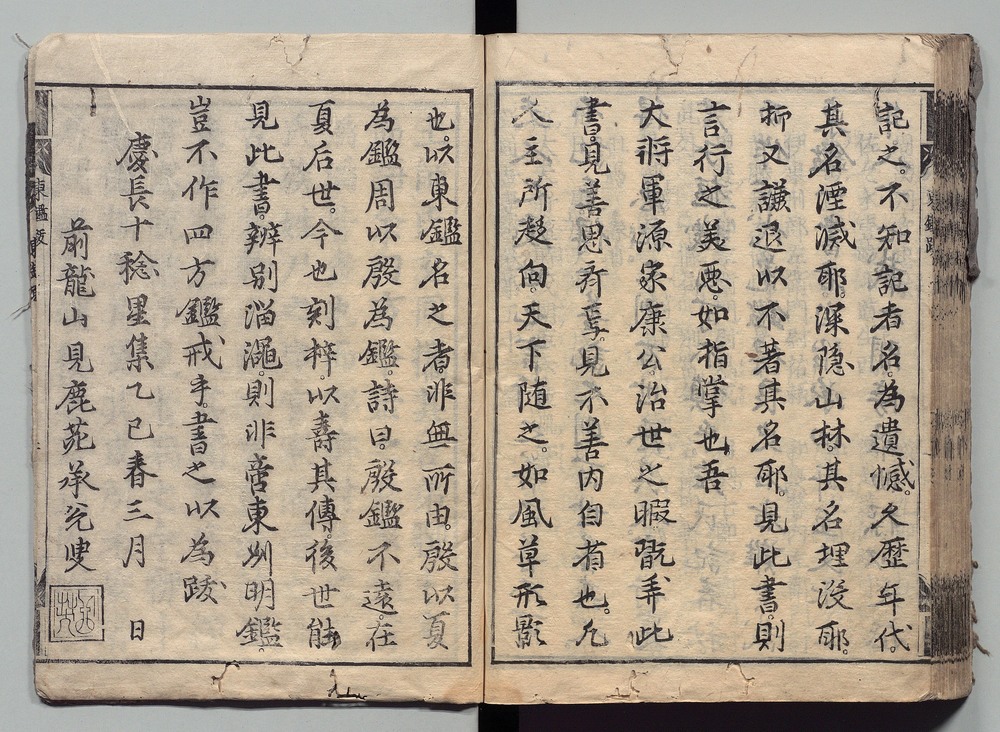 記之。不知記者名。為遺憾。久歷年代。
其名湮滅耶。深隱山林。其名埋沒耶。
抑又謙退以不著其名耶。見此書。則
言行之美惡。如指掌也。吾
大將軍源家康公。治世之暇。翫弄此
書。見善思齊焉。見不善內自省也。凡
人主所趍向。天下隨之。如風草形影
也。以東鑑名之者。非無所由。殷以夏
為鑑。周以殷為鑑。詩曰。殷鑑不遠。在
夏后世。今也刻梓以壽其傳。後世能
見此書。辨別淄澠。則非啻東州明鑑。
豈不作四方鑑戒乎。書之以為跋
慶長十稔星集乙巳春三月 日
前龍山見鹿苑承兌叟
東鑑跋